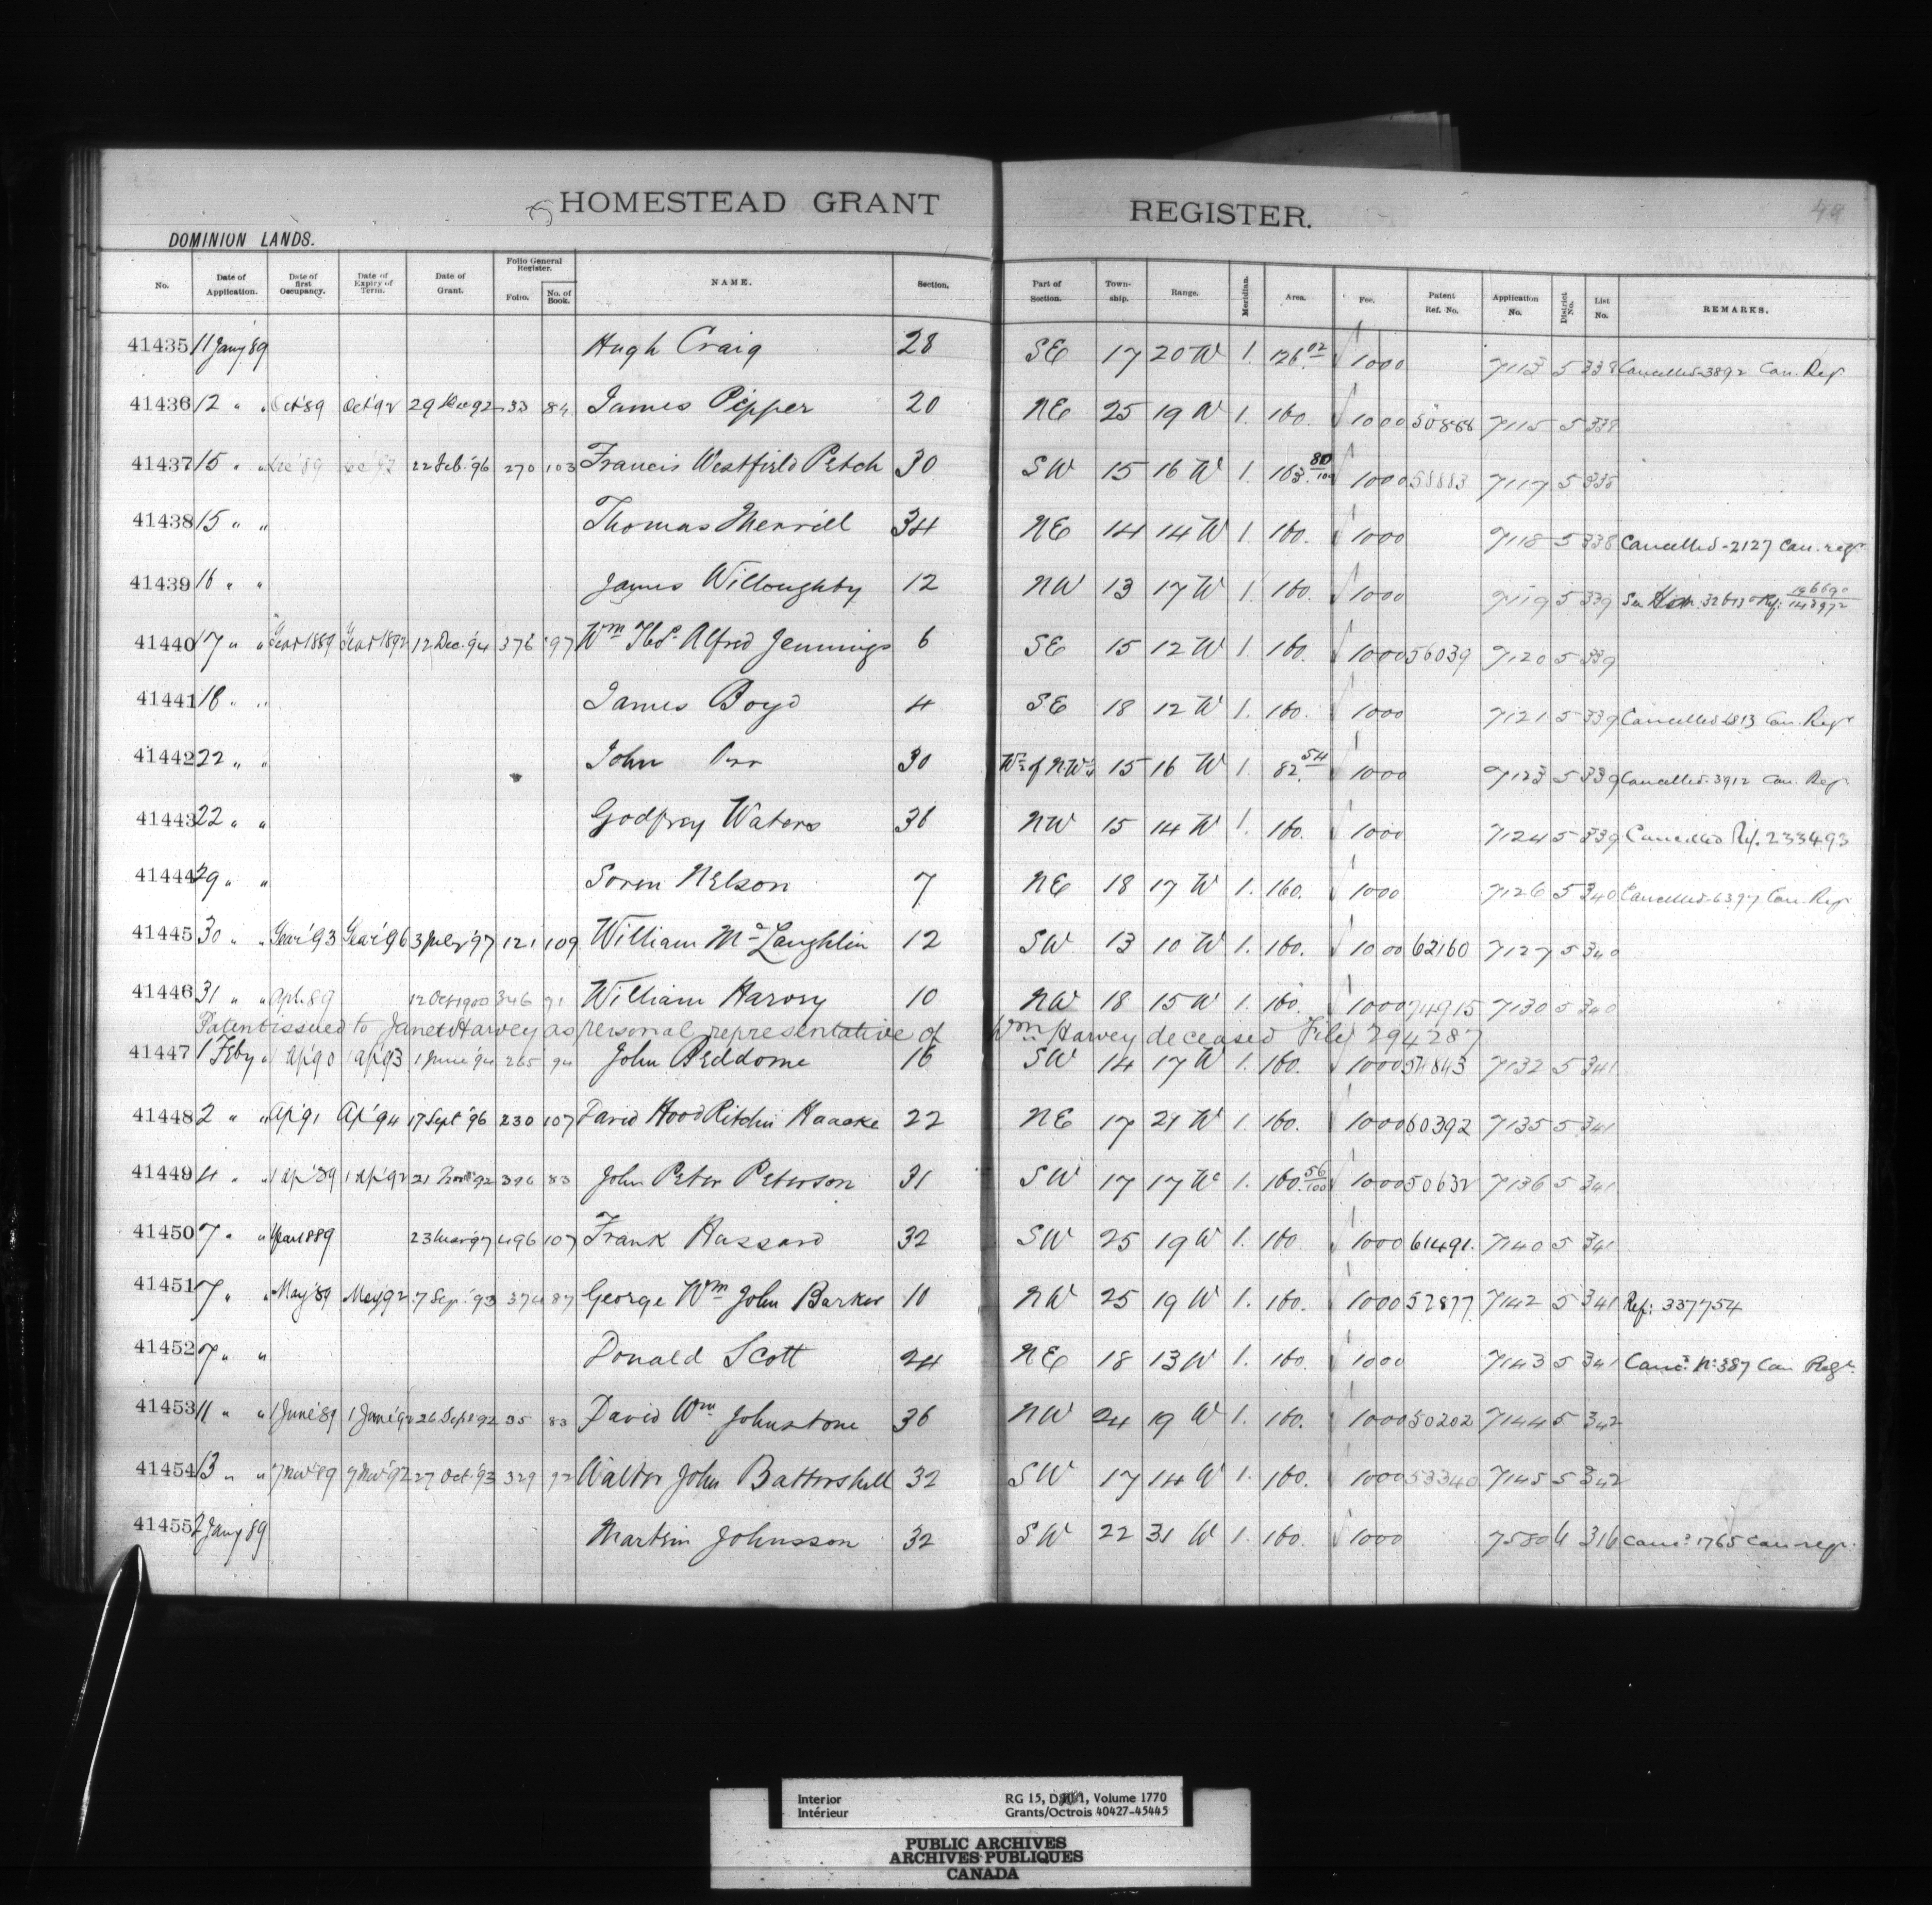 HOMESTEAD GRANT REGISTER.
49
DOMINION LANDS.
No. Date of Application. Date of first Occupancy. Date of Expiry of Term. Date of Grant. Folio General Register. Folio. No. of Book. NAME. Section. Part of Section. Town-ship. Range. Meridian. Area. Fee. Patent Ref. No. Application No. District No. List No. REMARKS.
41435 11 Jany 89 Hugh Craig 28 SE 17 20 W 1. 126.02 1000 7113 5 338 Cancelled-3892 Can. Reg
41436 12 " " Oct '89 Oct '92 29 Dec 92 33 84 James Pepper 20 NE 25 19 W 1. 160. 1000 50886 7115 5 338
41437 15 " " Dec '89 Dec '92 22 Feb. '96 270 103 Francis Westfield Petch 30 SW 15 16 W 1. 163. 80/100 1000 58883 7117 5 338
41438 15 " " Thomas Merrill 34 NE 14 14 W 1. 160. 1000 7118 5 338 Cancelled-2127 Can. regr
41439 16 " " James Willoughby 12 NW 13 17 W 1. 160. 1000 7119 5 339 See Ref:
41440 17 " " Year 1889 Year 1892 12 Dec. '94 376 97 Wm Thos. Alfred Jennings 6 SE 15 12 W 1. 160. 1000 56039 7120 5 339
41441 18 " " James Boyd 4 SE 18 12 W 1. 160. 1000 7121 5 339 Cancelled 6813 Can. Regr
41442 22 " " John Orr 30 W½ of N.W¼ 15 16 W 1. 82.54 1000 7123 5 339 Cancelled-3912 Can. Reg.
41443 22 " " Godfrey Waters 36 NW 15 14 W 1. 160. 1000 7124 5 339 Cancelled Ref. 233493
41444 29 " " Soren Nelson 7 NE 18 17 W 1. 160. 1000 7126 5 340 Cancelled-6397 Can. Regr
41445 30 " " Year '93 Year '96 3 July '97 121 109 William McLaughlin 12 SW 13 10 W 1. 160. 1000 62160 7127 5 340
41446 31 " " Apl. 89 12 Oct 1900 346 91 William Harvey 10 NW 18 15 W 1. 160. 1000 74915 7130 5 340
Patent issued to Janet Harvey as personal representative of Wm Harvey deceased File 294287
41447 1 Feby " 1 Ap '90 1 Ap '93 1 June '94 265 94 John Beddome 16 SW 14 17 W 1. 160. 1000 54843 7132 5 341
41448 2 " " Ap '91 Ap '94 17 Sept '96 230 107 David Hood Ritchie Haacke 22 NE 17 21 W 1. 160. 1000 60392 7135 5 341
41449 4 " " 1 Ap '89 1 Ap '92 21 Novr '92 396 83 John Peter Peterson 31 SW 17 17 W 1. 160. 56/100 1000 50632 7136 5 341
41450 7 " " Year 1889 23 Mar '97 496 107 Frank Hassard 32 SW 25 19 W 1. 160 1000 61491. 7140 5 341
41451 7 " " May '89 May '92 7 Sep. '93 374 87 George Wm John Barker 10 NW 25 19 W 1. 160. 1000 52877 7142 5 341 Ref: 337754
41452 7 " " Donald Scott 24 NE 18 13 W 1. 160. 1000 7143 5 341 Cancd. No. 387 Can Regr.
41453 11 " " 1 June '89 1 June '92 26 Sept 92 35 83 David Wm Johnstone 36 NW 24 19 W 1. 160. 1000 50202 7144 5 342
41454 13 " " 7 Nov '89 7 Nov '92 27 Oct. '93 329 92 Walter John Battershill 32 SW 17 14 W 1. 160. 1000 53340 7145 5 342
41455 2 Jany 89 Martin Johnsson 32 SW 22 31 W 1. 160. 1000 7580 6 316 Cancd. 1765 Can regr.
Interior RG 15, Volume 1770
Intérieur Grants/Octrois 40427-45445
PUBLIC ARCHIVES
ARCHIVES PUBLIQUES
CANADA